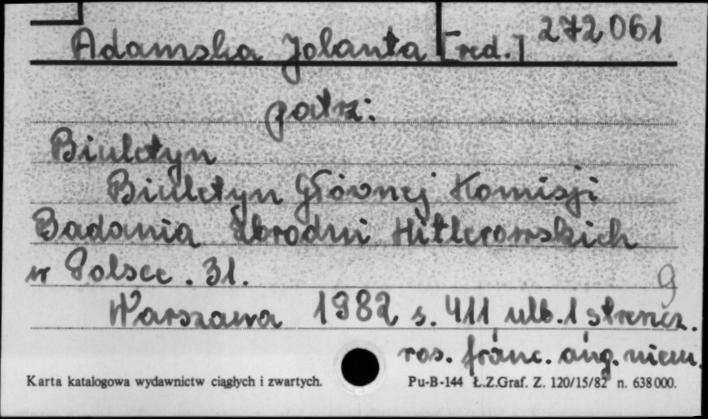 Adamska Jolanta [red.] 272061
patrz:
Biuletyn
Biuletyn Głównej Komisji
Badania Zbrodni Hitlerowskich
w Polsce. 31.
9
Warszawa 1982 s. 411 ulb. 1 streszcz.
ros. franc. ang. niem.
Karta katalogowa wydawnictw ciągłych i zwartych. Pu-B-144 Ł.Z.Graf. Z. 120/15/82 n. 638000.